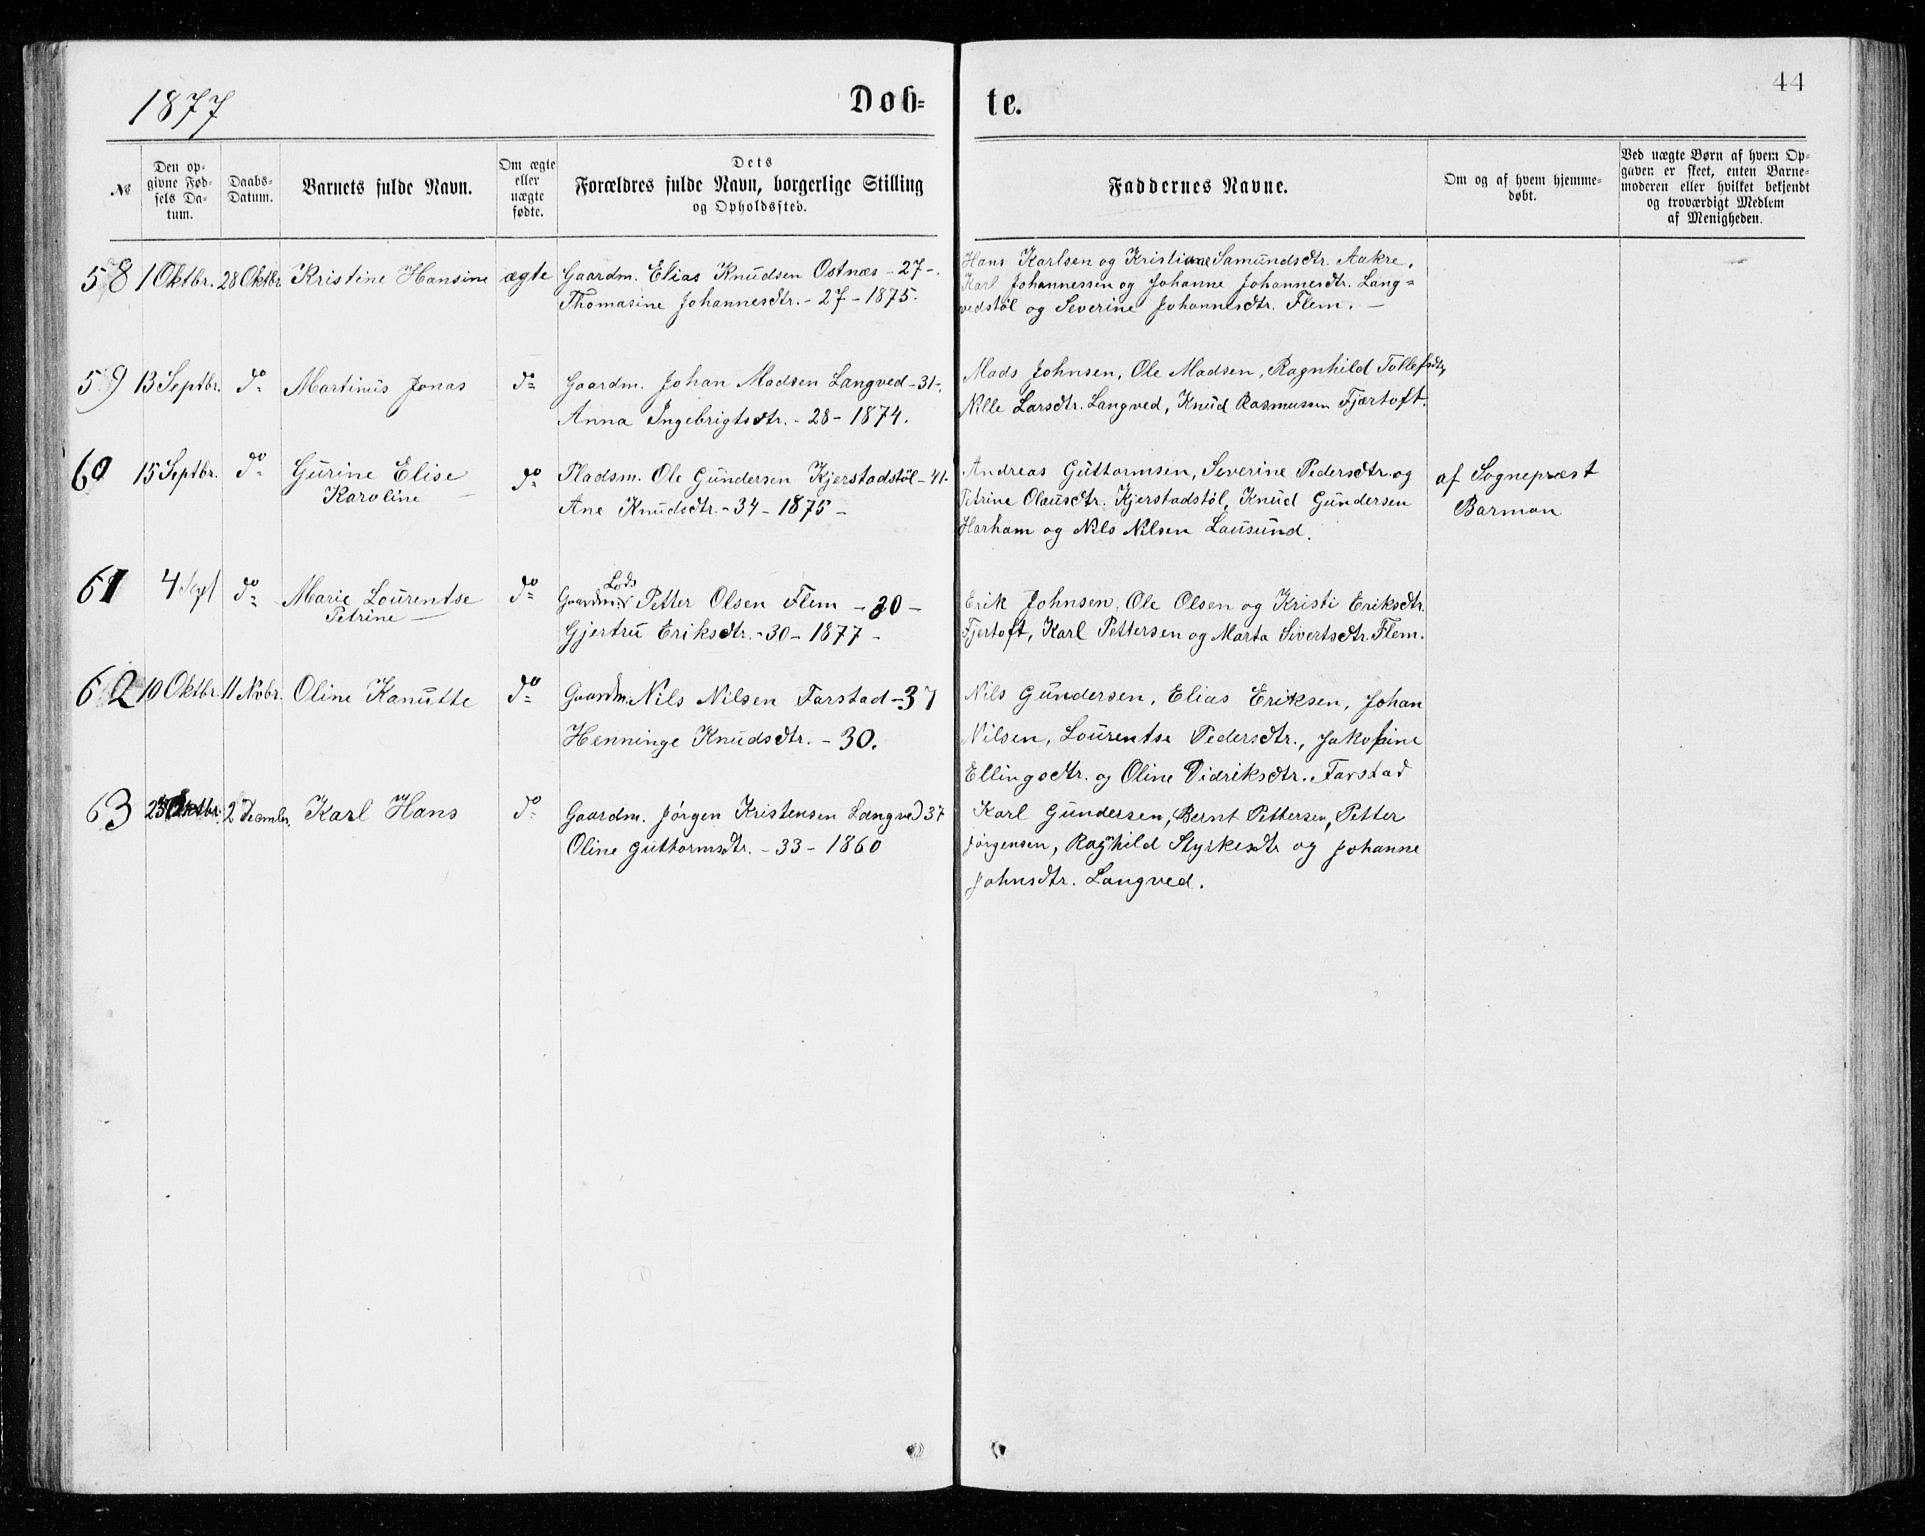 1877
Døb-
te.
44
№
Den op-
givne Fød-
sels Da-
tum.
Daabs-
Datum.
Barnets fulde Navn.
Om ægte
eller
uægte
fødte.
Dets
Forældres fulde Navn, borgerlige Stilling
og Opholdssted.
Faddernes Navne.
Om og af hvem hjemme-
døbt.
Ved uægte Børn af hvem Op-
gaven er skeet, enten Barne-
moderen eller hvilket bekjendt
og troværdigt Medlem
af Menigheden.
58 1 Oktbr. 28 Oktbr. Kristine Hansine ægte Gaardm. Elias Knudsen Ostnæs - 27 -.
Thomasine Johannesdtr. - 27 - 1875.
Hans Karlsen og Kristiane Samundsdtr. Aakre,
Karl Johannessen og Johanne Johannesdtr. Lang=
vedstøl og Severine Johannesdtr. Flem. -
59 13 Septbr. do Martinus Jonas do Gaardm. Johan Madsen Langved - 31 -.
Anna Ingebrigtsdtr. - 28 - 1874.
Mads Johnsen, Ole Madsen, Ragnhild Tollefsdtr,
Nille Larsdtr. Langved, Knud Rasmussen Fjærtoft.
60 15 Septbr. do Gurine Elise do Pladsm. Ole Gundersen Kjerstadstöl - 41.
Karoline -
Ane Knudsdtr. - 34 - 1875 -
Andreas Guttormsen, Severine Pedersdtr. og
Petrine Olausdtr. Kjerstadstöl, Knud Gundersen
Harham og Nils Nilsen Lausund.
af Sognepræst
Barman
61 4 Sept do Marie Lourentse do Lods
Gaardm. Petter Olsen Flem - 30 -
Petrine -
Gjertru Eriksdtr. - 30 - 1877 -
Erik Johnsen, Ole Olsen og Kristi Eriksdtr.
Fjertoft, Karl Pettersen og Marta Sivertsdtr. Flem.
62 10 Oktbr. 11 Nobr. Oline Kanutte do Gaardm. Nils Nilsen Farstad - 37
Henninge Knudsdtr. - 30.
Nils Gundersen, Elias Eriksen, Johan
Nilsen, Lourentse Pedersdtr., Jakobine
Ellingsdtr. og Oline Didriksdtr. Farstad
63 Oktbr. 2 Decmbr. Karl Hans do Gaardm. Jørgen Kristensen Langved 37
Oline Guttormsdtr. - 33 - 1860
Karl Gundersen, Bernt Pettersen, Petter
Jörgensen, Ragnhild Styrkesdtr og Johanne
Johnsdtr. Langved.